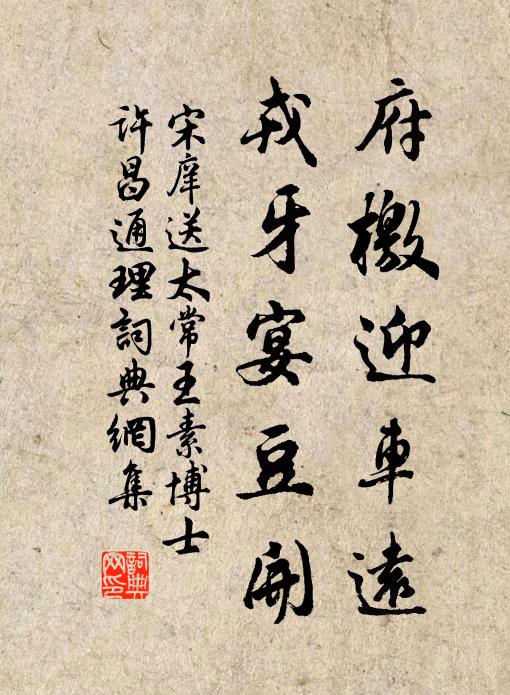 府檄迎車遠
戎牙宴豆開
宋庠送太常王素博士
許昌通理詞典網集
詞典網印